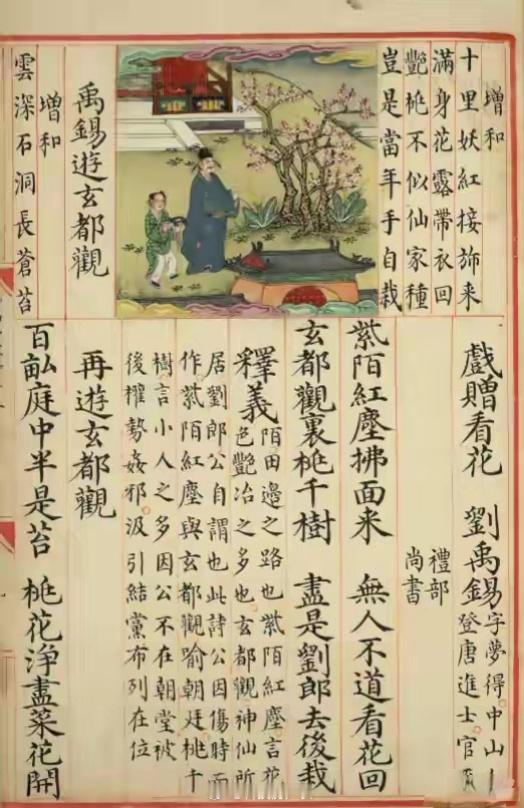 增和
十里妖紅接旆来
滿身花露帶衣回
艷桃不似仙家種
豈是當年手自栽
禹錫遊玄都觀
增和
雲深石洞長蒼苔
戲贈看花 劉禹錫字夢得中山
登唐進士官
禮部
尚書
紫陌紅塵拂面来 無人不道看花回
玄都觀裏桃千樹 盡是劉郎去後栽
釋義陌田邊之路也紫陌紅塵言花
色艷冶之多也玄都觀神仙所
居劉郎公自謂也此詩公因傷時而
作紫陌紅塵與玄都觀喻朝廷桃千
樹言小人之多因公不在朝堂被
後權勢姦邪汲引結黨布列在位
再遊玄都觀
百畝庭中半是苔 桃花淨盡菜花開